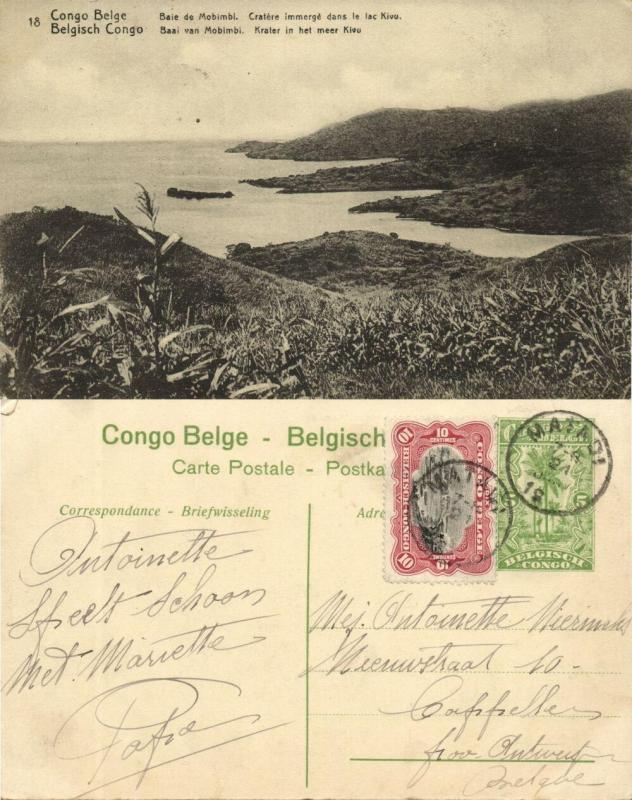 18 Congo Belge Baie de Mobimbi. Cratère immergé dans le lac Kivu.
Belgisch Congo Baai van Mobimbi. Krater in het meer Kivu
Congo Belge - Belgisch
Carte Postale - Postka
Correspondance - Briefwisseling
Adre
10 CENTIMES 10
CONGO BELGE
BELGISCH CONGO
10 10
MATADI
MATADI
5
BELGISCH
CONGO
Antoinette
Speelt Schoon
Met Mariette
Papa
Mej. Antoinette
Nieuwstraat 10-
Cappellen
prov. Antwerpen
Belgique